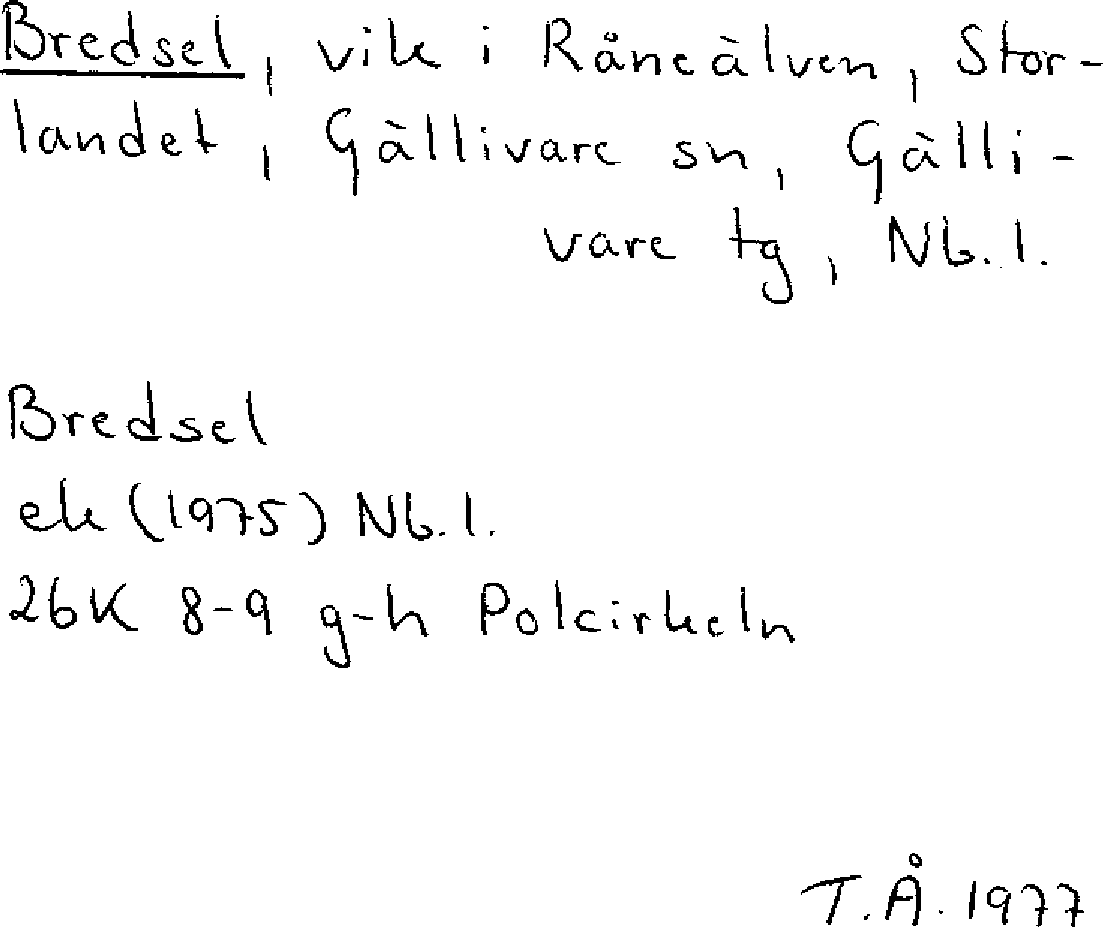 Bredsel, vik i Råneälven, Stor-
landet, Gällivare sn, Gälli-
vare tg, Nb. l.
Bredsel
ek (1975) Nb. l.
26K 8-9 g-h Polcirkeln
T.Å. 1977